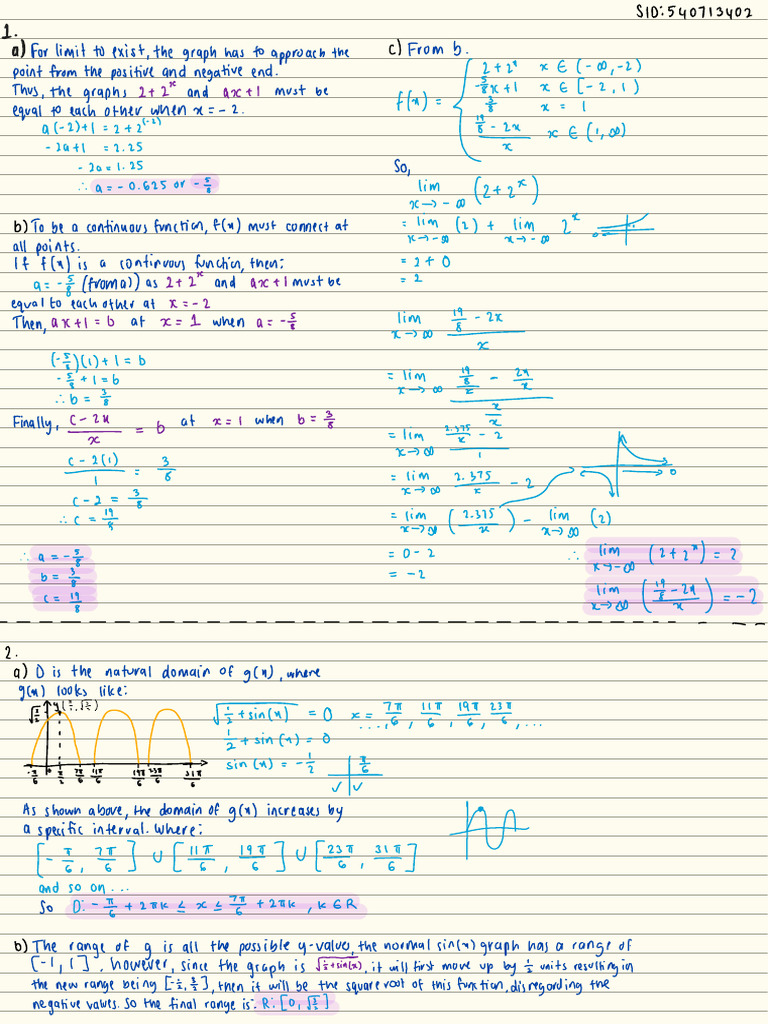 SID: 540713402
1.
a) For limit to exist, the graph has to approach the
point from the positive and negative end.
Thus, the graphs 2+2^x and ax+1 must be
equal to each other when x = -2.
a(-2)+1 = 2+2^(-2)
-2a+1 = 2.25
-2a = 1.25
∴ a = -0.625 or -5/8
b) To be a continuous function, f(x) must connect at
all points.
If f(x) is a continuous function, then:
a = -5/8 (from a)) as 2+2^x and ax+1 must be
equal to each other at x = -2
Then, ax+1 = b at x = 1 when a = -5/8
(-5/8)(1)+1 = b
-5/8 + 1 = b
∴ b = 3/8
Finally, (c-2x)/x = b at x = 1 when b = 3/8
(c-2(1))/1 = 3/8
c-2 = 3/8
∴ c = 19/8
∴ a = -5/8
b = 3/8
c = 19/8
c) From b.
f(x) = {
2+2^x x ∈ (-∞, -2)
-5/8 x+1 x ∈ [-2, 1)
3/8 x = 1
(19/8 - 2x)/x x ∈ (1, ∞)
So,
lim x→-∞ (2+2^x)
= lim x→-∞ (2) + lim x→-∞ 2^x
= 2+0
= 2
lim x→∞ (19/8 - 2x)/x
= lim x→∞ ((19/8)/x - 2x/x)/(x/x)
= lim x→∞ (2.375/x - 2)/1
= lim x→∞ 2.375/x - 2
0
= lim x→∞ (2.375/x) - lim x→∞ (2)
= 0-2
= -2
∴ lim x→-∞ (2+2^x) = 2
lim x→∞ ((19/8 - 2x)/x) = -2
2.
a) D is the natural domain of g(x), where
g(x) looks like:
√(3/2) y (π/2, √(3/2))
-π/6 0 π/2 7π/6 11π/6 19π/6 23π/6 31π/6
√(1/2 + sin(x)) = 0 x = ..., 7π/6, 11π/6, 19π/6, 23π/6, ...
1/2 + sin(x) = 0
sin(x) = -1/2
π/6
✓ ✓
As shown above, the domain of g(x) increases by
a specific interval. Where:
[-π/6, 7π/6] ∪ [11π/6, 19π/6] ∪ [23π/6, 31π/6]
and so on...
So D: -π/6 + 2πk ≤ x ≤ 7π/6 + 2πk, k ∈ R
b) The range of g is all the possible y-value, the normal sin(x) graph has a range of
[-1, 1]. However, since the graph is √(1/2+sin(x)), it will first move up by 1/2 units resulting in
the new range being [-1/2, 3/2], then it will be the square root of this function, disregarding the
negative values. So the final range is: R: [0, √(3/2)]